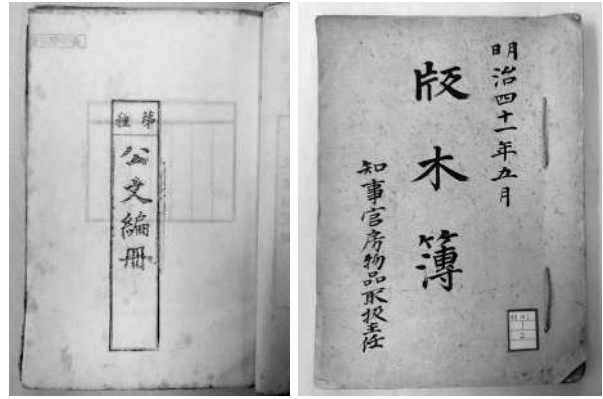 第種
公文編冊
明治四十一年五月
版木簿
知事官房物品取扱主任
1
2